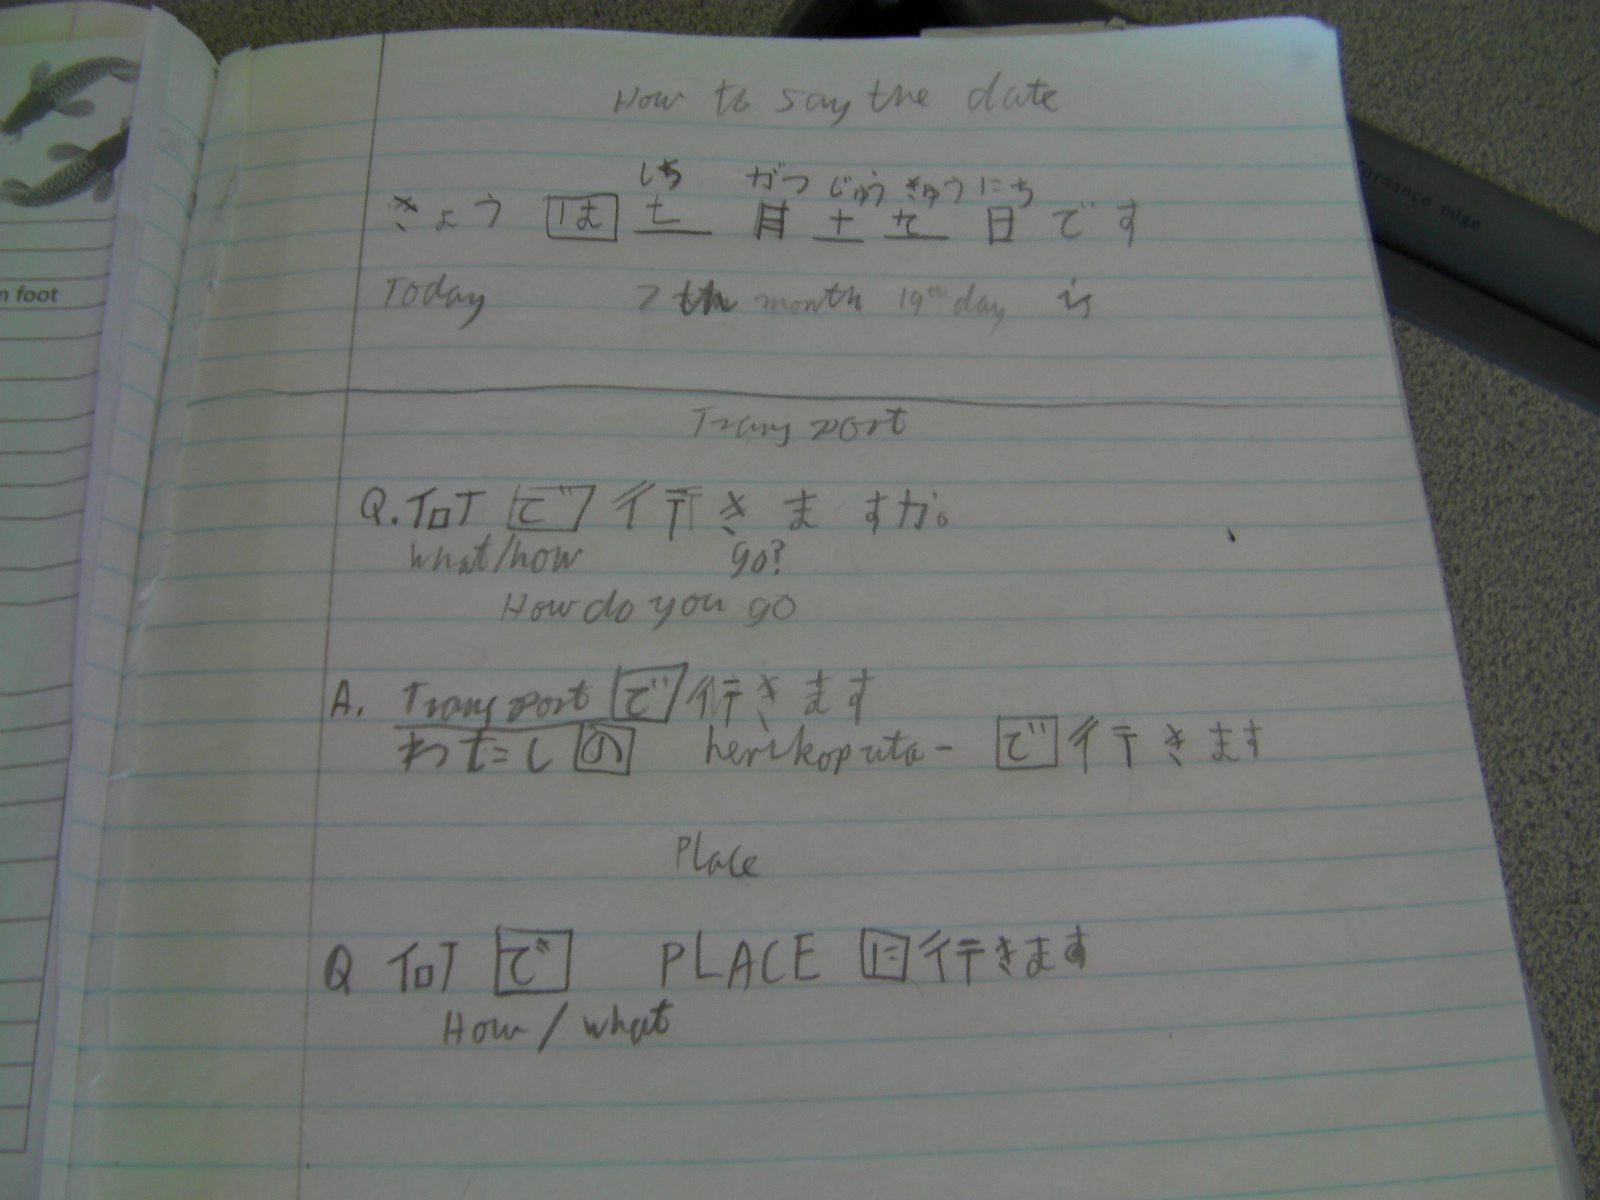 How to say the date
しち がつ じゅう きゅう にち
きょう は 七 月 十 九 日 です
Today 7th month 19th day is
Transport
Q. 何 で 行きますか。
what/how go?
How do you go
A. Transport で 行きます
わたしの herikoputa- で 行きます
Place
Q 何 で PLACE に 行きます
How / what
n foot
formance edge